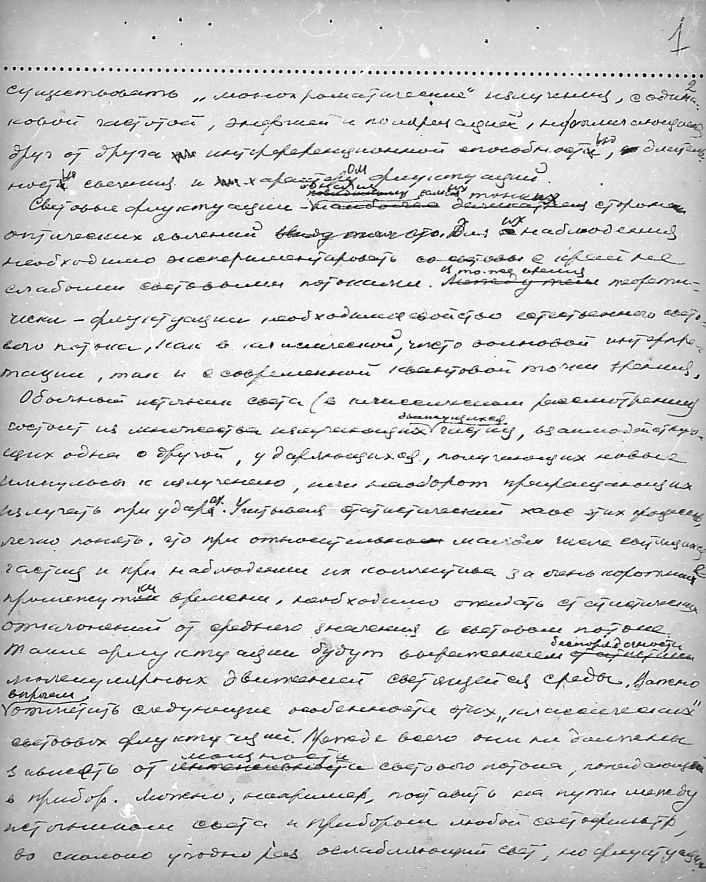 1
2
существовать „монохроматические“ излучения, с одина-
ковой частотой, энергией и поляризацией, но отличающиеся
друг от друга интерференционной способностью, длитель-
ностью свечения и характером флуктуаций.
Световые флуктуации – одна из самых тонких сторон
оптических явлений. Для их наблюдения
необходимо экспериментировать с крайне
слабыми световыми потоками. В то же время теорети-
чески – флуктуации необходимое свойство естественного свето-
вого потока, как в классической, чисто волновой интерпре-
тации, так и с современной квантовой точки зрения.
Обычный источник света (в классическом рассмотрении)
состоит из множества излучающих движущихся частиц, взаимодействую-
щих одна с другой, ударяющихся, получающих новые
импульсы к излучению, или наоборот прекращающих
излучать при ударах. Учитывая статистический хаос этих процессов,
легко понять, что при относительно малом числе светящихся
частиц и при наблюдении их коллектива за очень короткие
промежутки времени, необходимо ожидать статистических
отклонений от среднего значения в световом потоке.
Такие флуктуации будут выражением беспорядочности
молекулярных движений светящейся среды. Важно
впрочем отметить следующие особенности этих „классических“
световых флуктуаций. Прежде всего они не должны
зависеть от мощности светового потока, попадающего
в прибор. Можно, например, поставить на пути между
источником света и прибором любой светофильтр,
во сколько угодно раз ослабляющий свет, но флуктуации